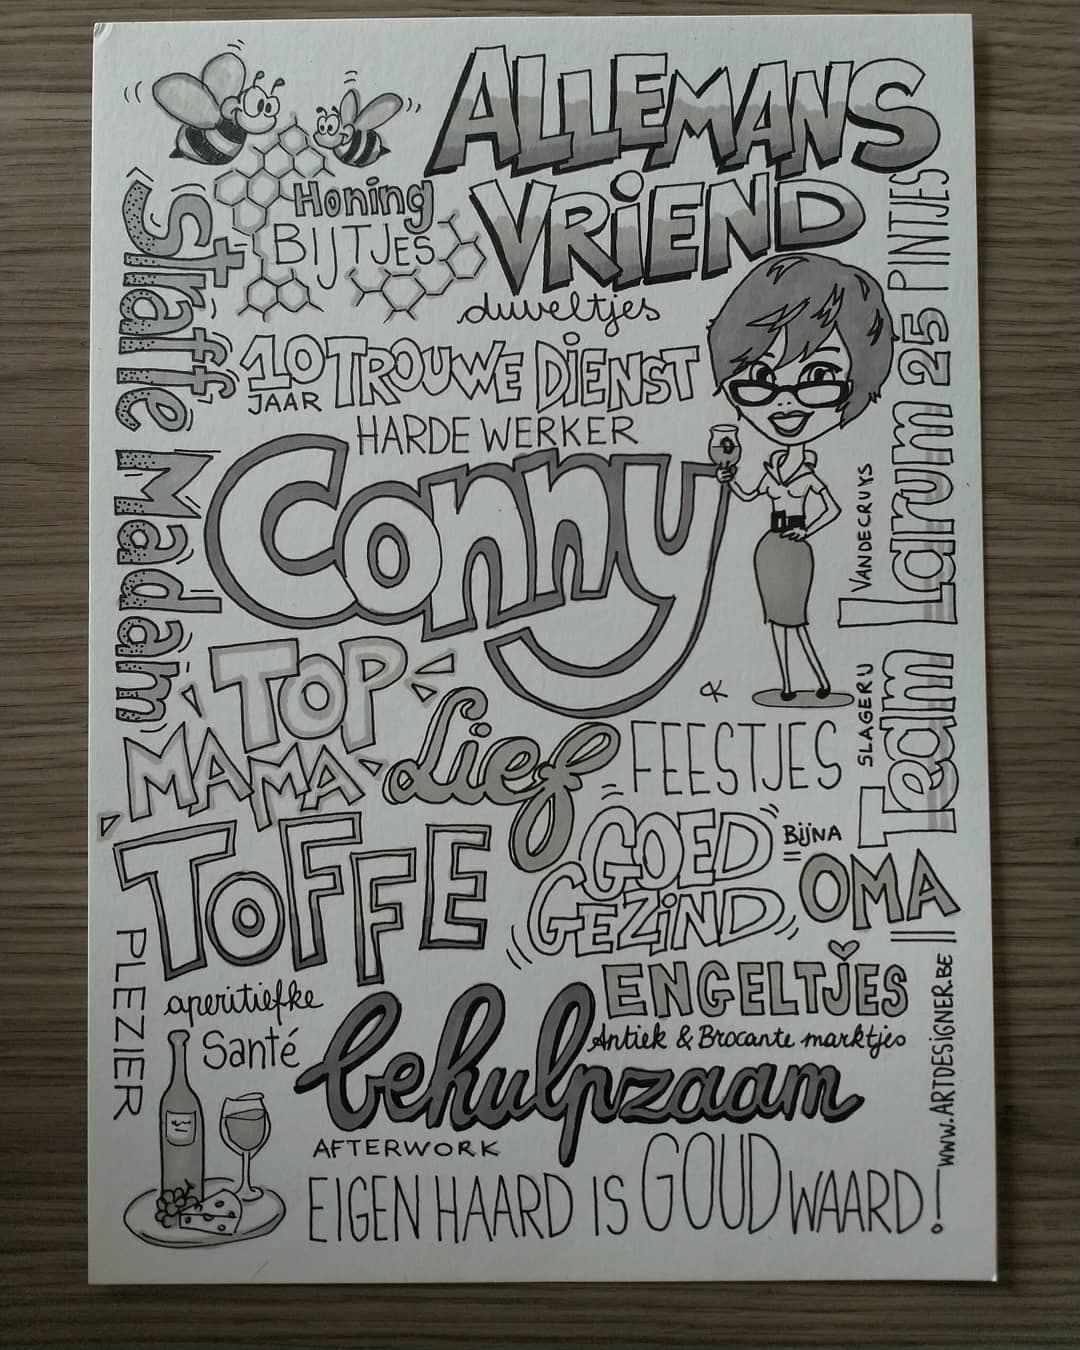 ALLEMANS
VRIEND
Honing
BIJTJES
duveltjes
Straffe Madam
10 JAAR TROUWE DIENST
HARDE WERKER
Conny
Team Larum 25 PINTJES
SLAGERIJ VANDECRUYS
TOP
MAMA
Lief
FEESTJES
TOFFE
GOED
GEZIND
BIJNA
OMA
ENGELTJES
PLEZIER
aperitiefke
Santé
behulpzaam
Antiek & Brocante marktjes
AFTERWORK
EIGEN HAARD IS GOUD WAARD!
WWW.ARTDESIGNER.BE